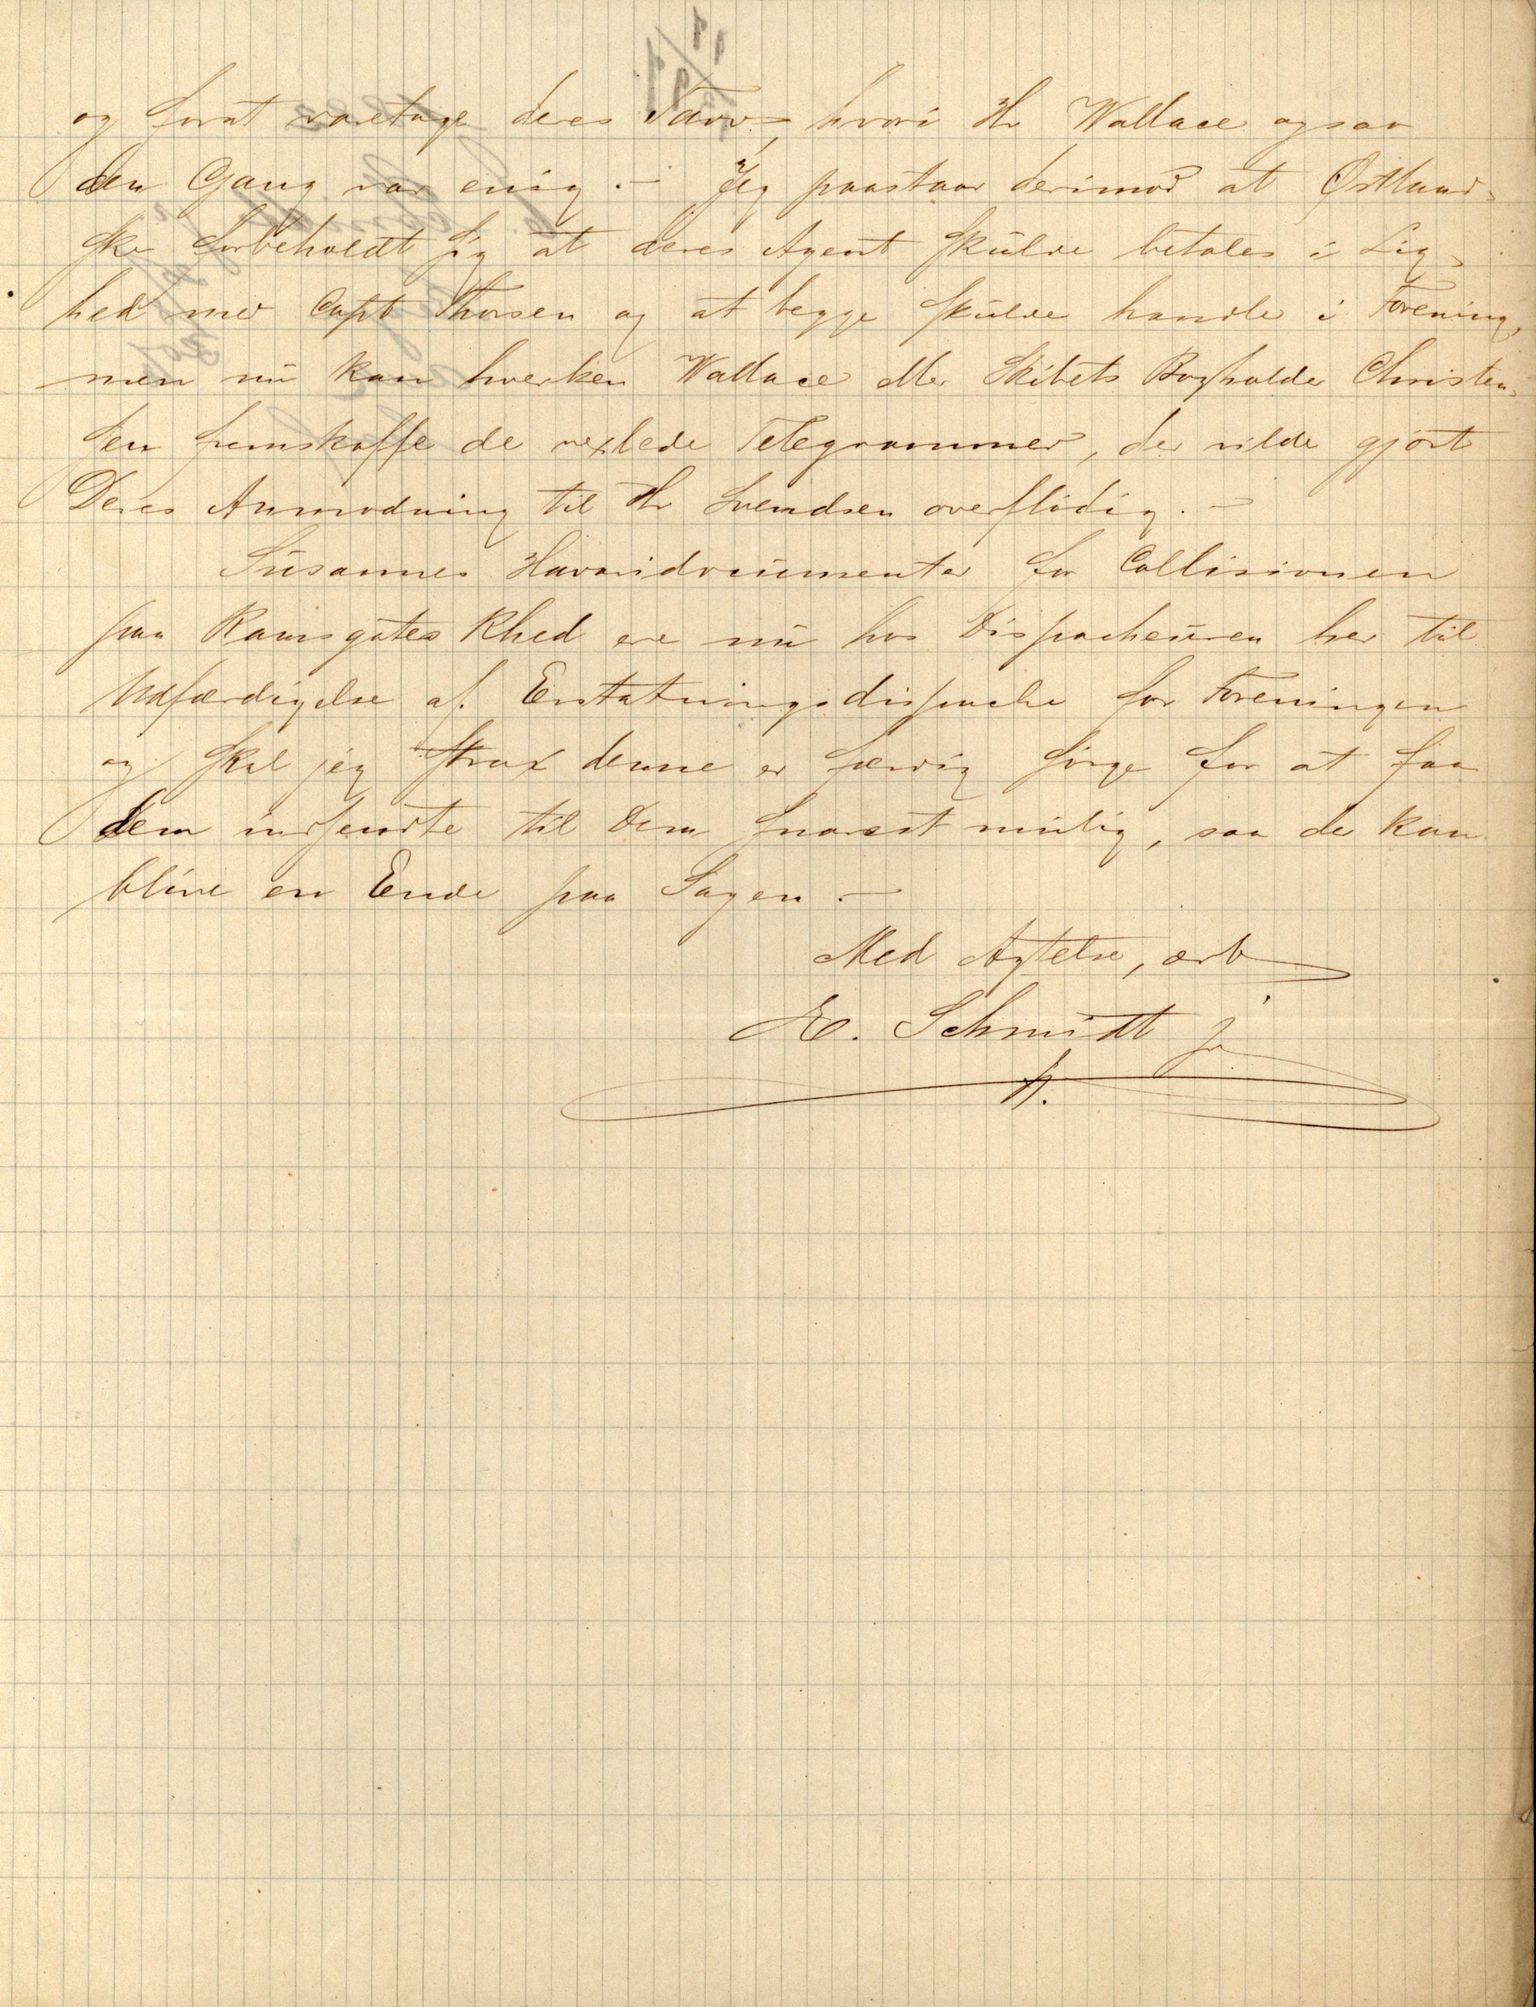 og forat varetage deres Tarv, hvori Hr Wallace ogsaa
den Gang var enig. — Jeg paastaar derimod at Østland-
ske forbeholdt sig at deres Agent skulde betales i Lig-
hed med Capt Thorsen og at begge skulde handle i Forening,
men nu kan hverken Wallace eller Skibets Bogholder Christen-
sen fremskaffe de vexlede Telegrammer, der vilde gjort
Deres Anmodning til Hr Svendsen overflødig. —
Susannes Havaridocumenter for Collisionen
paa Ramsgates Rhed ere nu hos Dispacheuren her til
Udfærdigelse af Erstatningsdispache for Foreningen
og skal jeg strax denne er færdig sørge for at faa
dem indsendte til Dem snarest mulig, saa der kan
blive en Ende paa Sagen. —
Med Agtelse, ærb
E. Schmidt jr